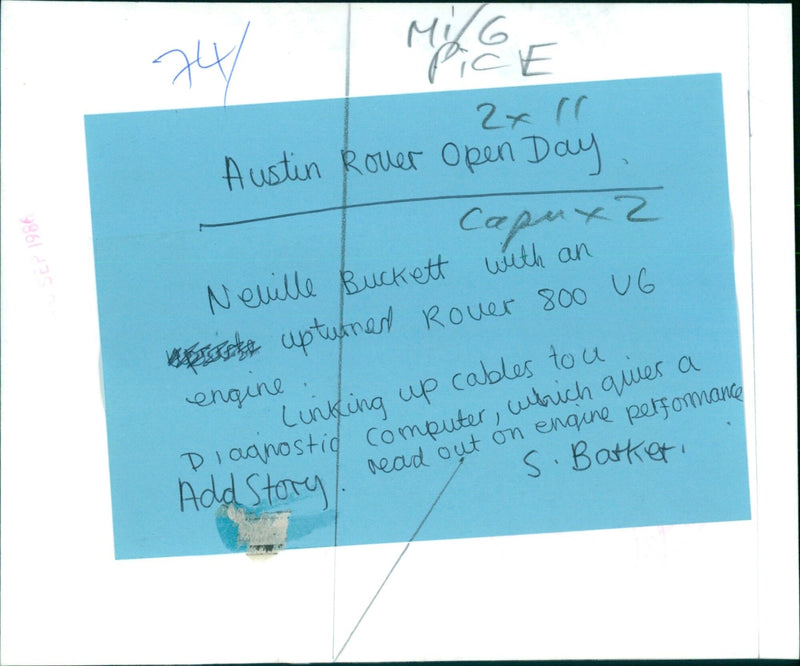 74/
Mi/G
PiCE
2x 11
Austin Rover Open Day.
Capn x 2
Neville Buckett with an
upturned Rover 800 V6
engine.
Linking up cables to a
Diagnostic Computer, which gives a
read out on engine performance.
Add Story.
S. Barker.
SEP 1986